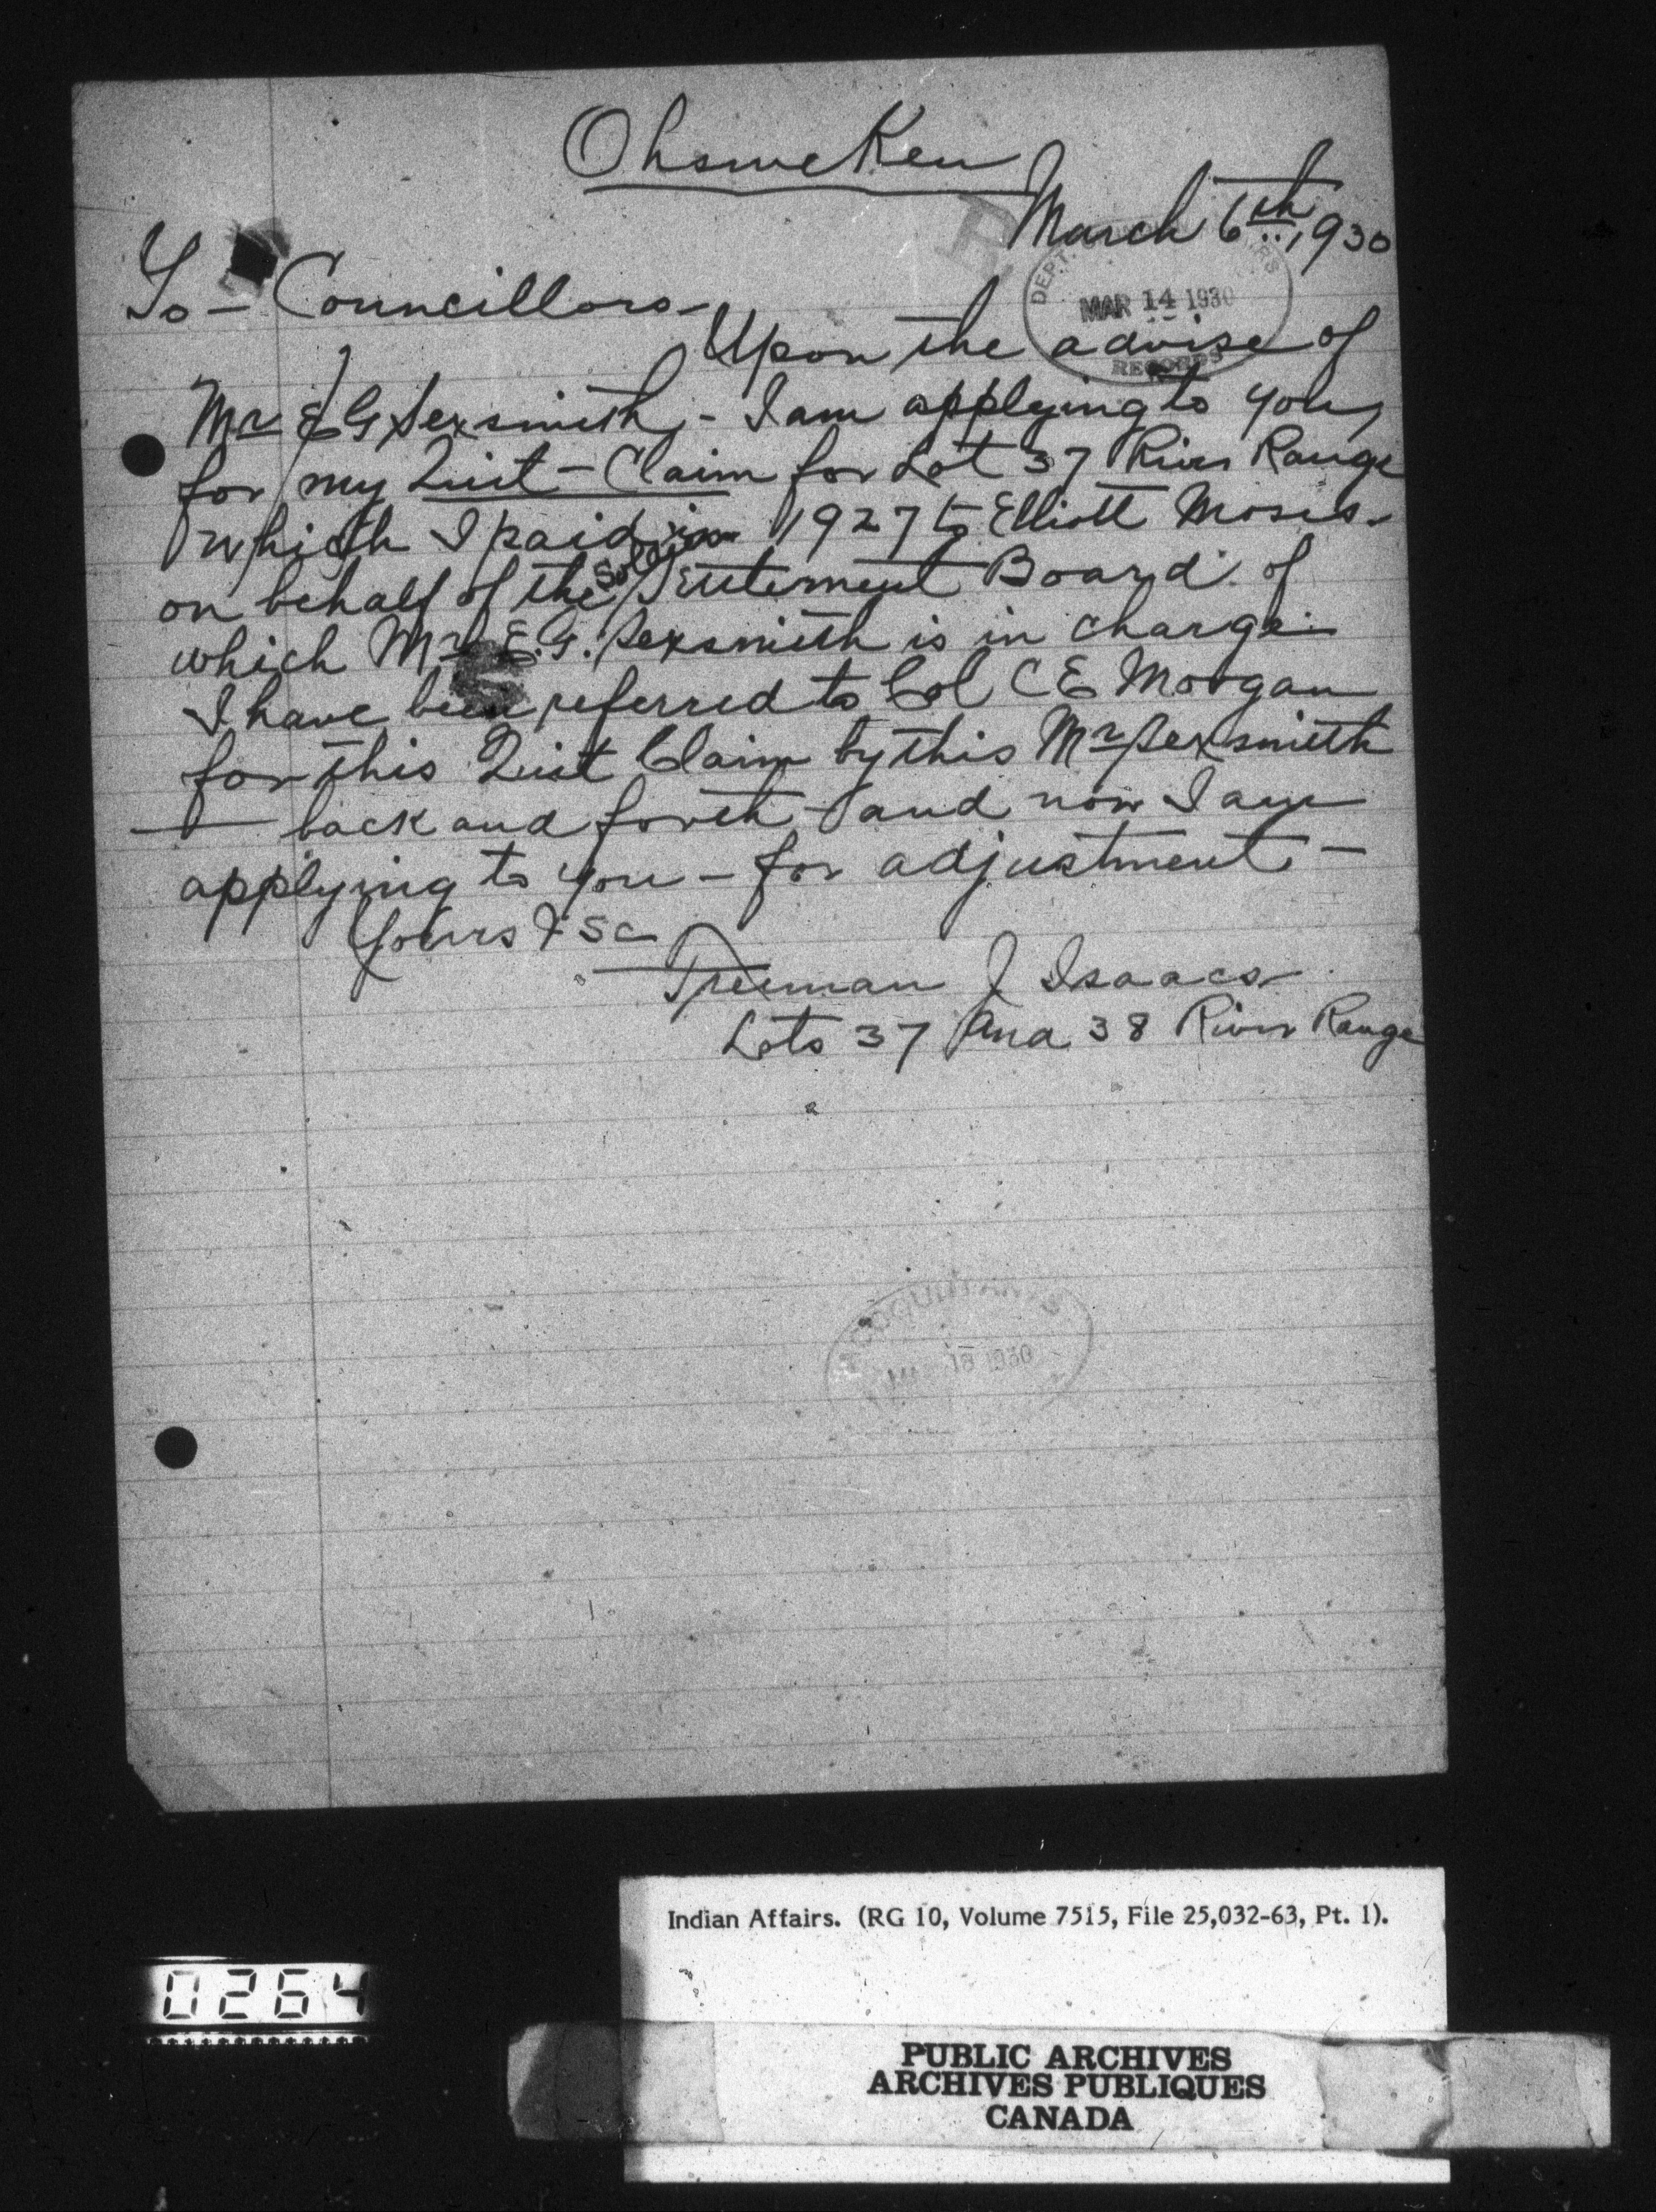 Ohsweken
March 6th 1930
DEPT.
MAR 14 1930
RECORDS
To - Councillors -
Upon the advise of
Mr E G Sexsmith, - I am applying to you,
for my Quit - Claim for Lot 37 River Range
which I paid in 1927 to Elliott Moses -
on behalf of the Soldier Settlement Board of
which Mr E.G. Sexsmith is in charge -
I have been referred to Col C E Morgan
for this Quit Claim by this Mr Sexsmith
- back and forth - and now I am
applying to you - for adjustment -
Yours &sc
Freeman J Isaacs
Lots 37 And 38 River Range
18 1930
Indian Affairs. (RG 10, Volume 7515, File 25,032-63, Pt. 1).
0264
PUBLIC ARCHIVES
ARCHIVES PUBLIQUES
CANADA